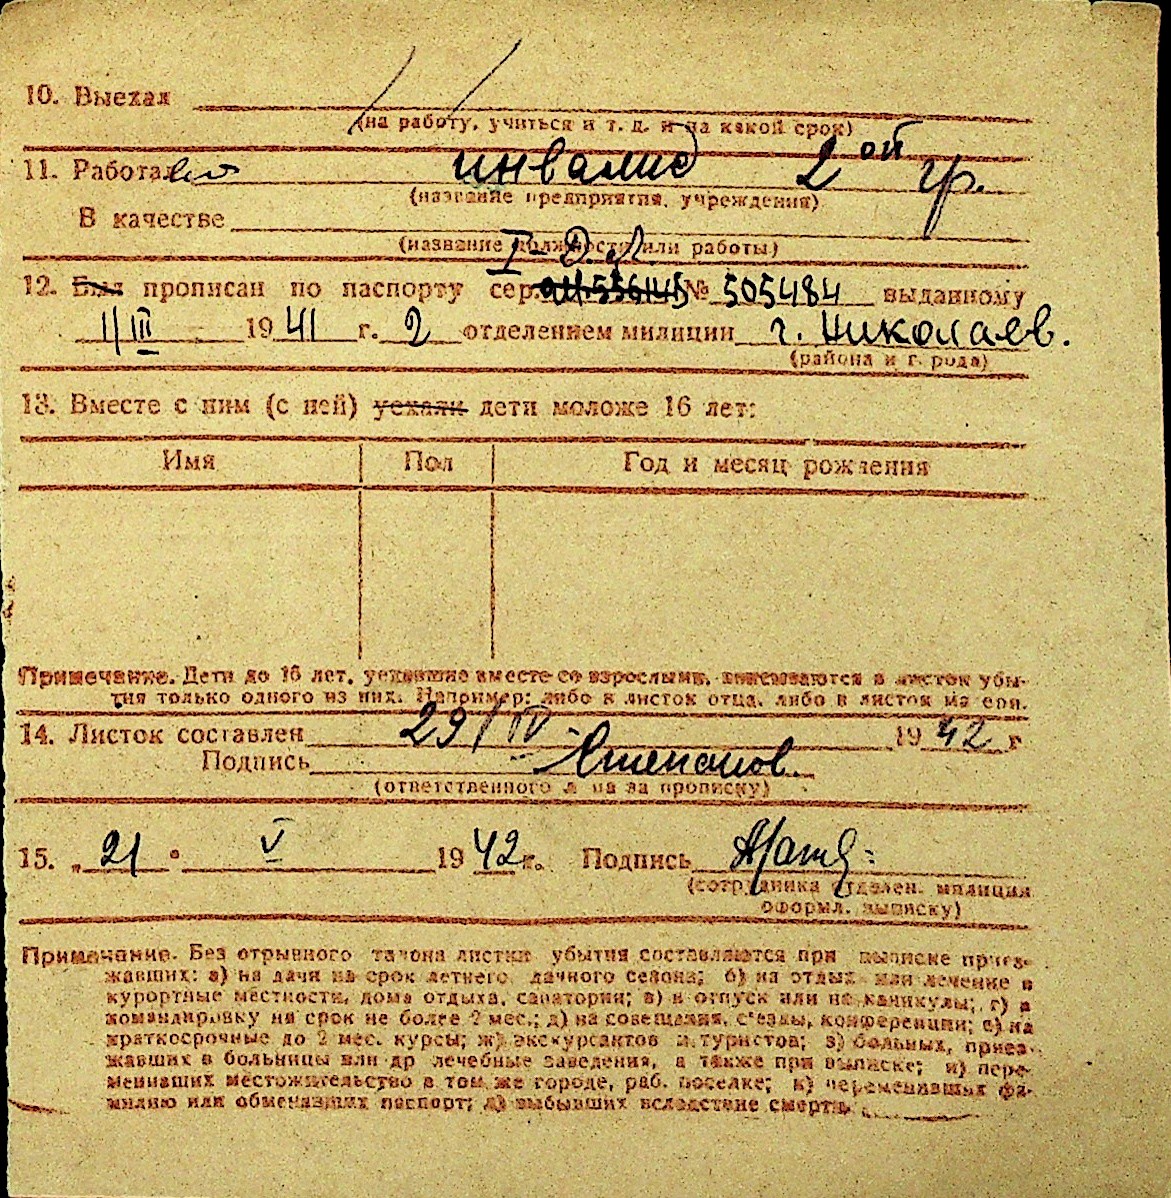 10. Выехал
(на работу, учиться и т. д. и на какой срок)
11. Работал инвалид 2 ой гр.
(название предприятия, учреждения)
В качестве
(название должности или работы)
12. Был прописан по паспорту сер. № 505484 выданному
1/III 1941 г. 2 отделением милиции г. Николаев.
(района и города)
13. Вместе с ним (с ней) уехали дети моложе 16 лет:
Имя Пол Год и месяц рождения
Примечание. Дети до 16 лет, уехавшие вместе со взрослыми, вписываются в листок убы-
тия только одного из них. Например: либо в листок отца, либо в листок матери.
14. Листок составлен 29/IV 1942 г
Подпись Степанов.
(ответственного лица за прописку)
15. „21" V 1942 г. Подпись
(сотрудника отделен. милиции
оформл. выписку)
Примечание. Без отрывного талона листки убытия составляются при выписке приез-
жавших: а) на дачи на срок летнего дачного сезона; б) на отдых или лечение в
курортные местности, дома отдыха, санатории; в) в отпуск или на каникулы; г) в
командировку на срок не более 2 мес.; д) на совещания, съезды, конференции; е) на
краткосрочные до 2 мес. курсы; ж) экскурсантов и туристов; з) больных, приез-
жавших в больницы или др лечебные заведения, а также при выписке; и) пере-
менивших местожительство в том же городе, раб. поселке; к) переменивших фа-
милию или обменявших паспорт; л) выбывших вследствие смерти.